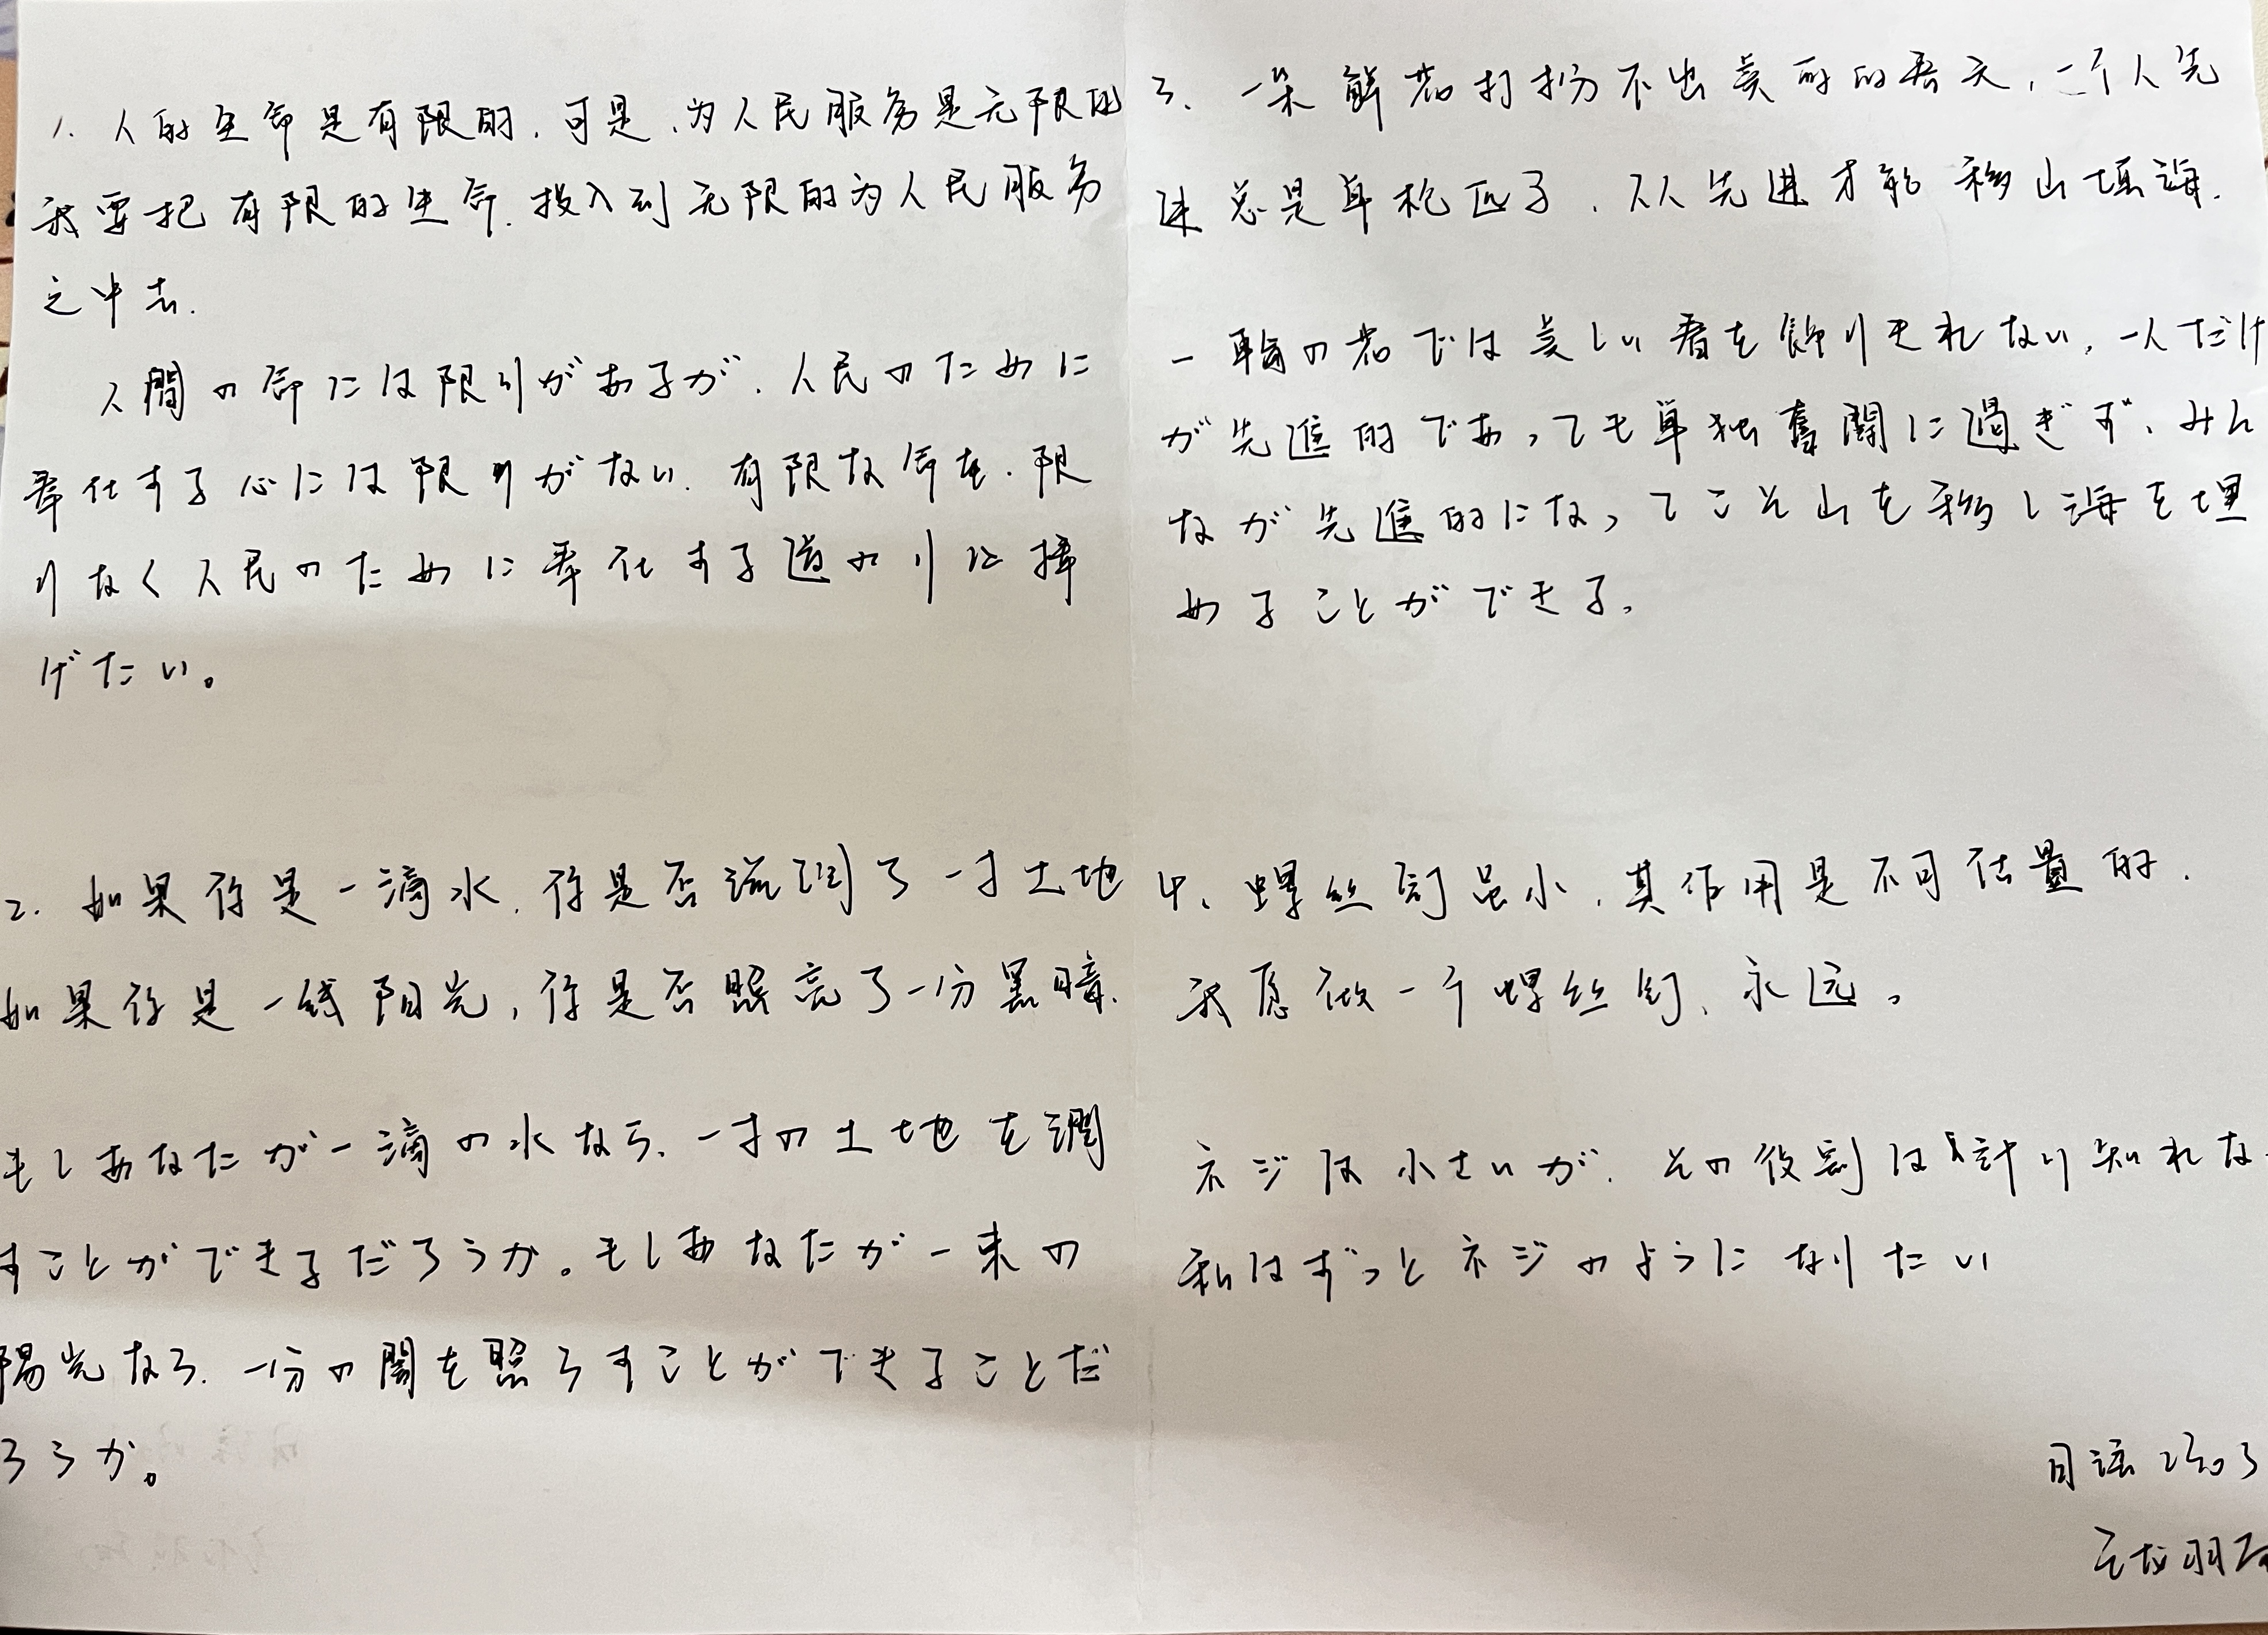 1. 人的生命是有限的，可是，为人民服务是无限的
我要把有限的生命，投入到无限的为人民服务
之中去.
人間の命には限りがあるが、人民のために
奉仕する心には限りがない、有限な命を、限
りなく人民のために奉仕する道のりに捧
げたい。
2. 如果你是一滴水，你是否滋润了一寸土地
如果你是一线阳光，你是否照亮了一分黑暗.
もしあなたが一滴の水なら、一寸の土地を潤
すことができるだろうか。もしあなたが一束の
陽光なら、一分の闇を照らすことができることだ
ろうか。
3、一朵鲜花打扮不出美丽的春天，一个人先
进总是单枪匹马，众人先进才能移山填海.
一輪の花では美しい春を飾りきれない、一人だけ
が先進的であっても単独奮闘に過ぎず、みん
なが先進的になってこそ山を移し海を埋
めることができる。
4、螺丝钉虽小，其作用是不可估量的.
我愿做一个螺丝钉，永远。
ネジは小さいが、その役割は計り知れな
私はずっとネジのようになりたい
日语